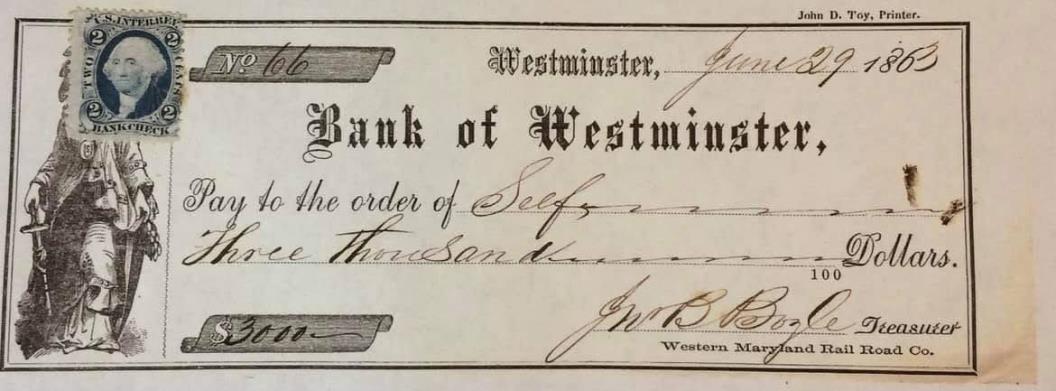 John D. Toy, Printer.
U.S. INTER. REV.
2 2
TWO CENTS
2 2
BANK CHECK
No 66
Westminster, June 29 1863
Bank of Westminster,
Pay to the order of Self
Three thousand Dollars.
100
$3000
Jno B Boyle Treasurer
Western Maryland Rail Road Co.